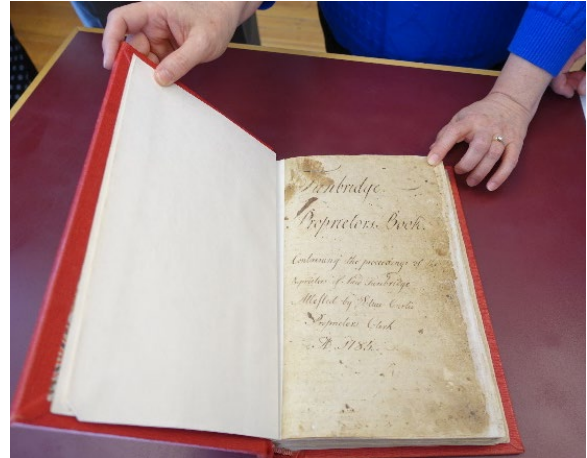 Tunbridge
Proprietors Book.
Containing the proceedings of
Proprietors of Tunbridge
Attested by
Proprietors Clerk
A. 1784.